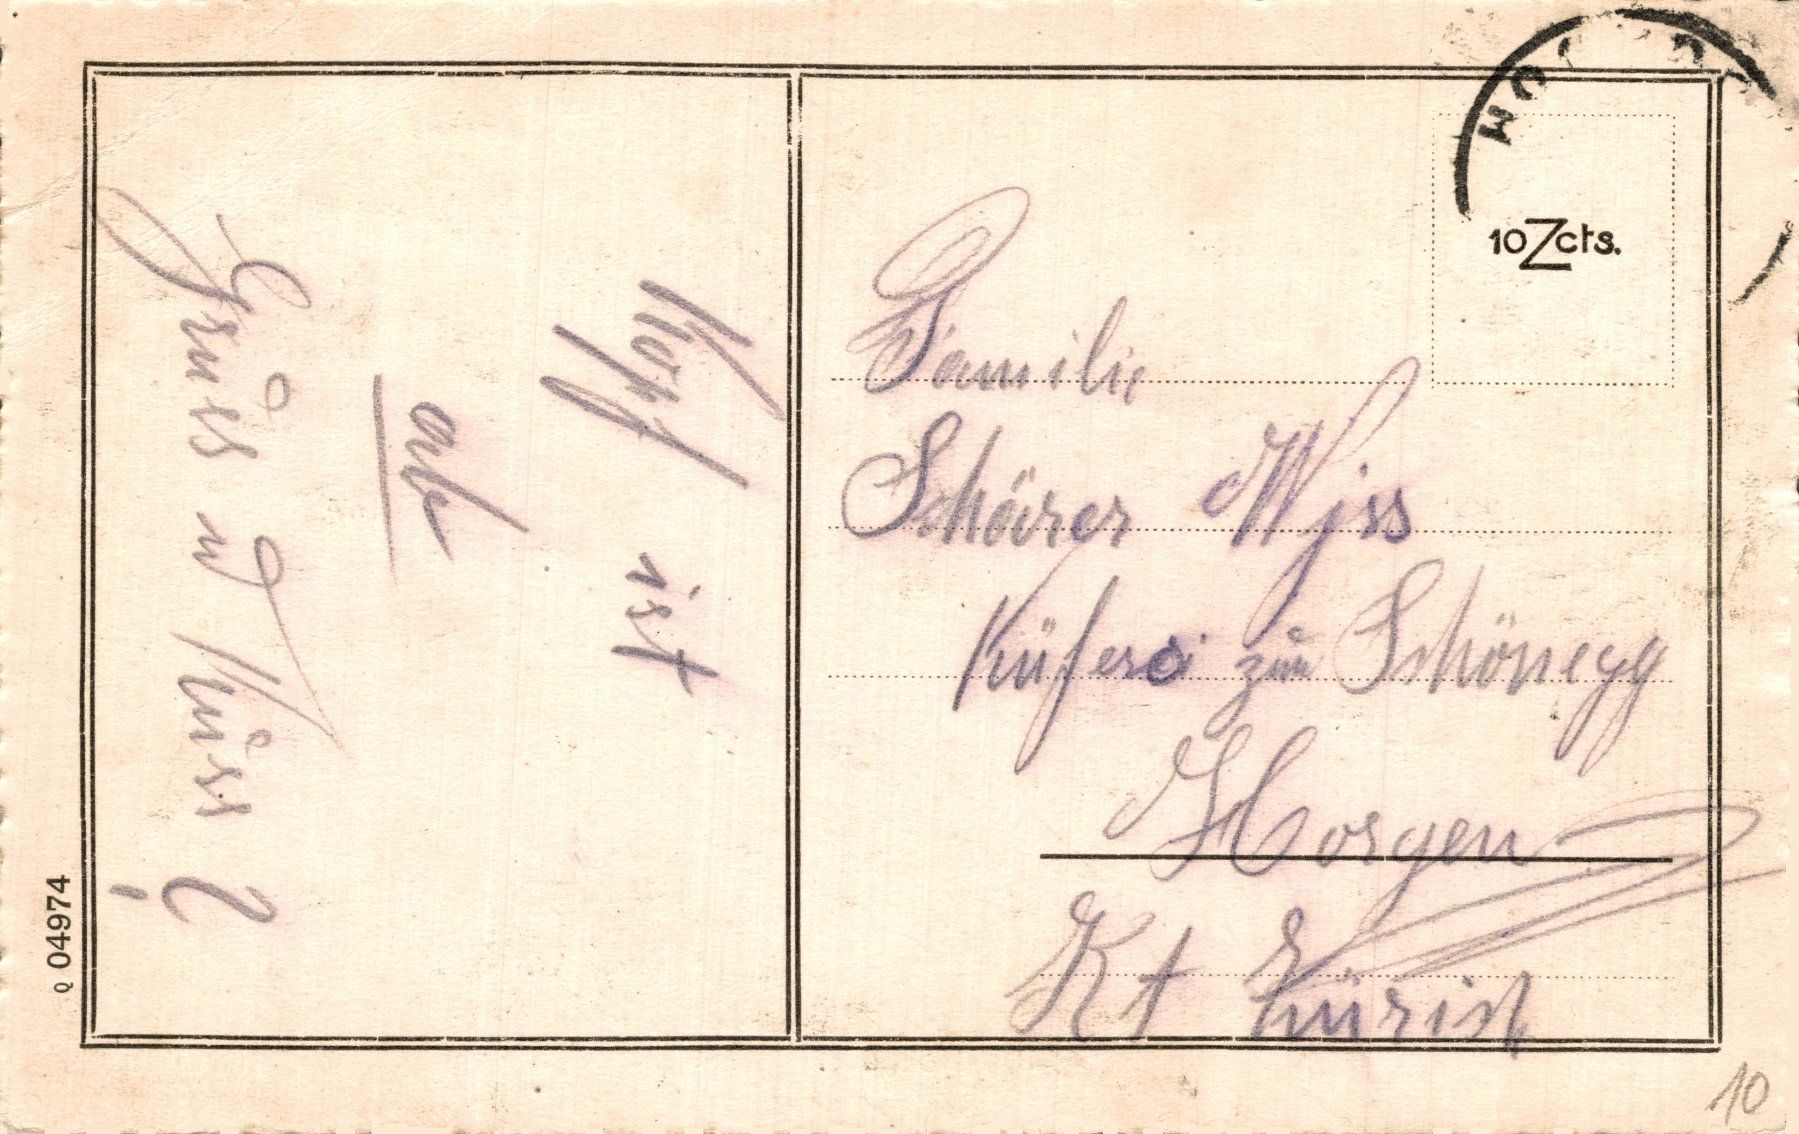 Kopf ist
ab
Gruss u Kuss ?
10Zcts.
Familie
Schärer Wyss
Küferei zur Schönegg
Horgen
Kt Zürich
Q 04974
10